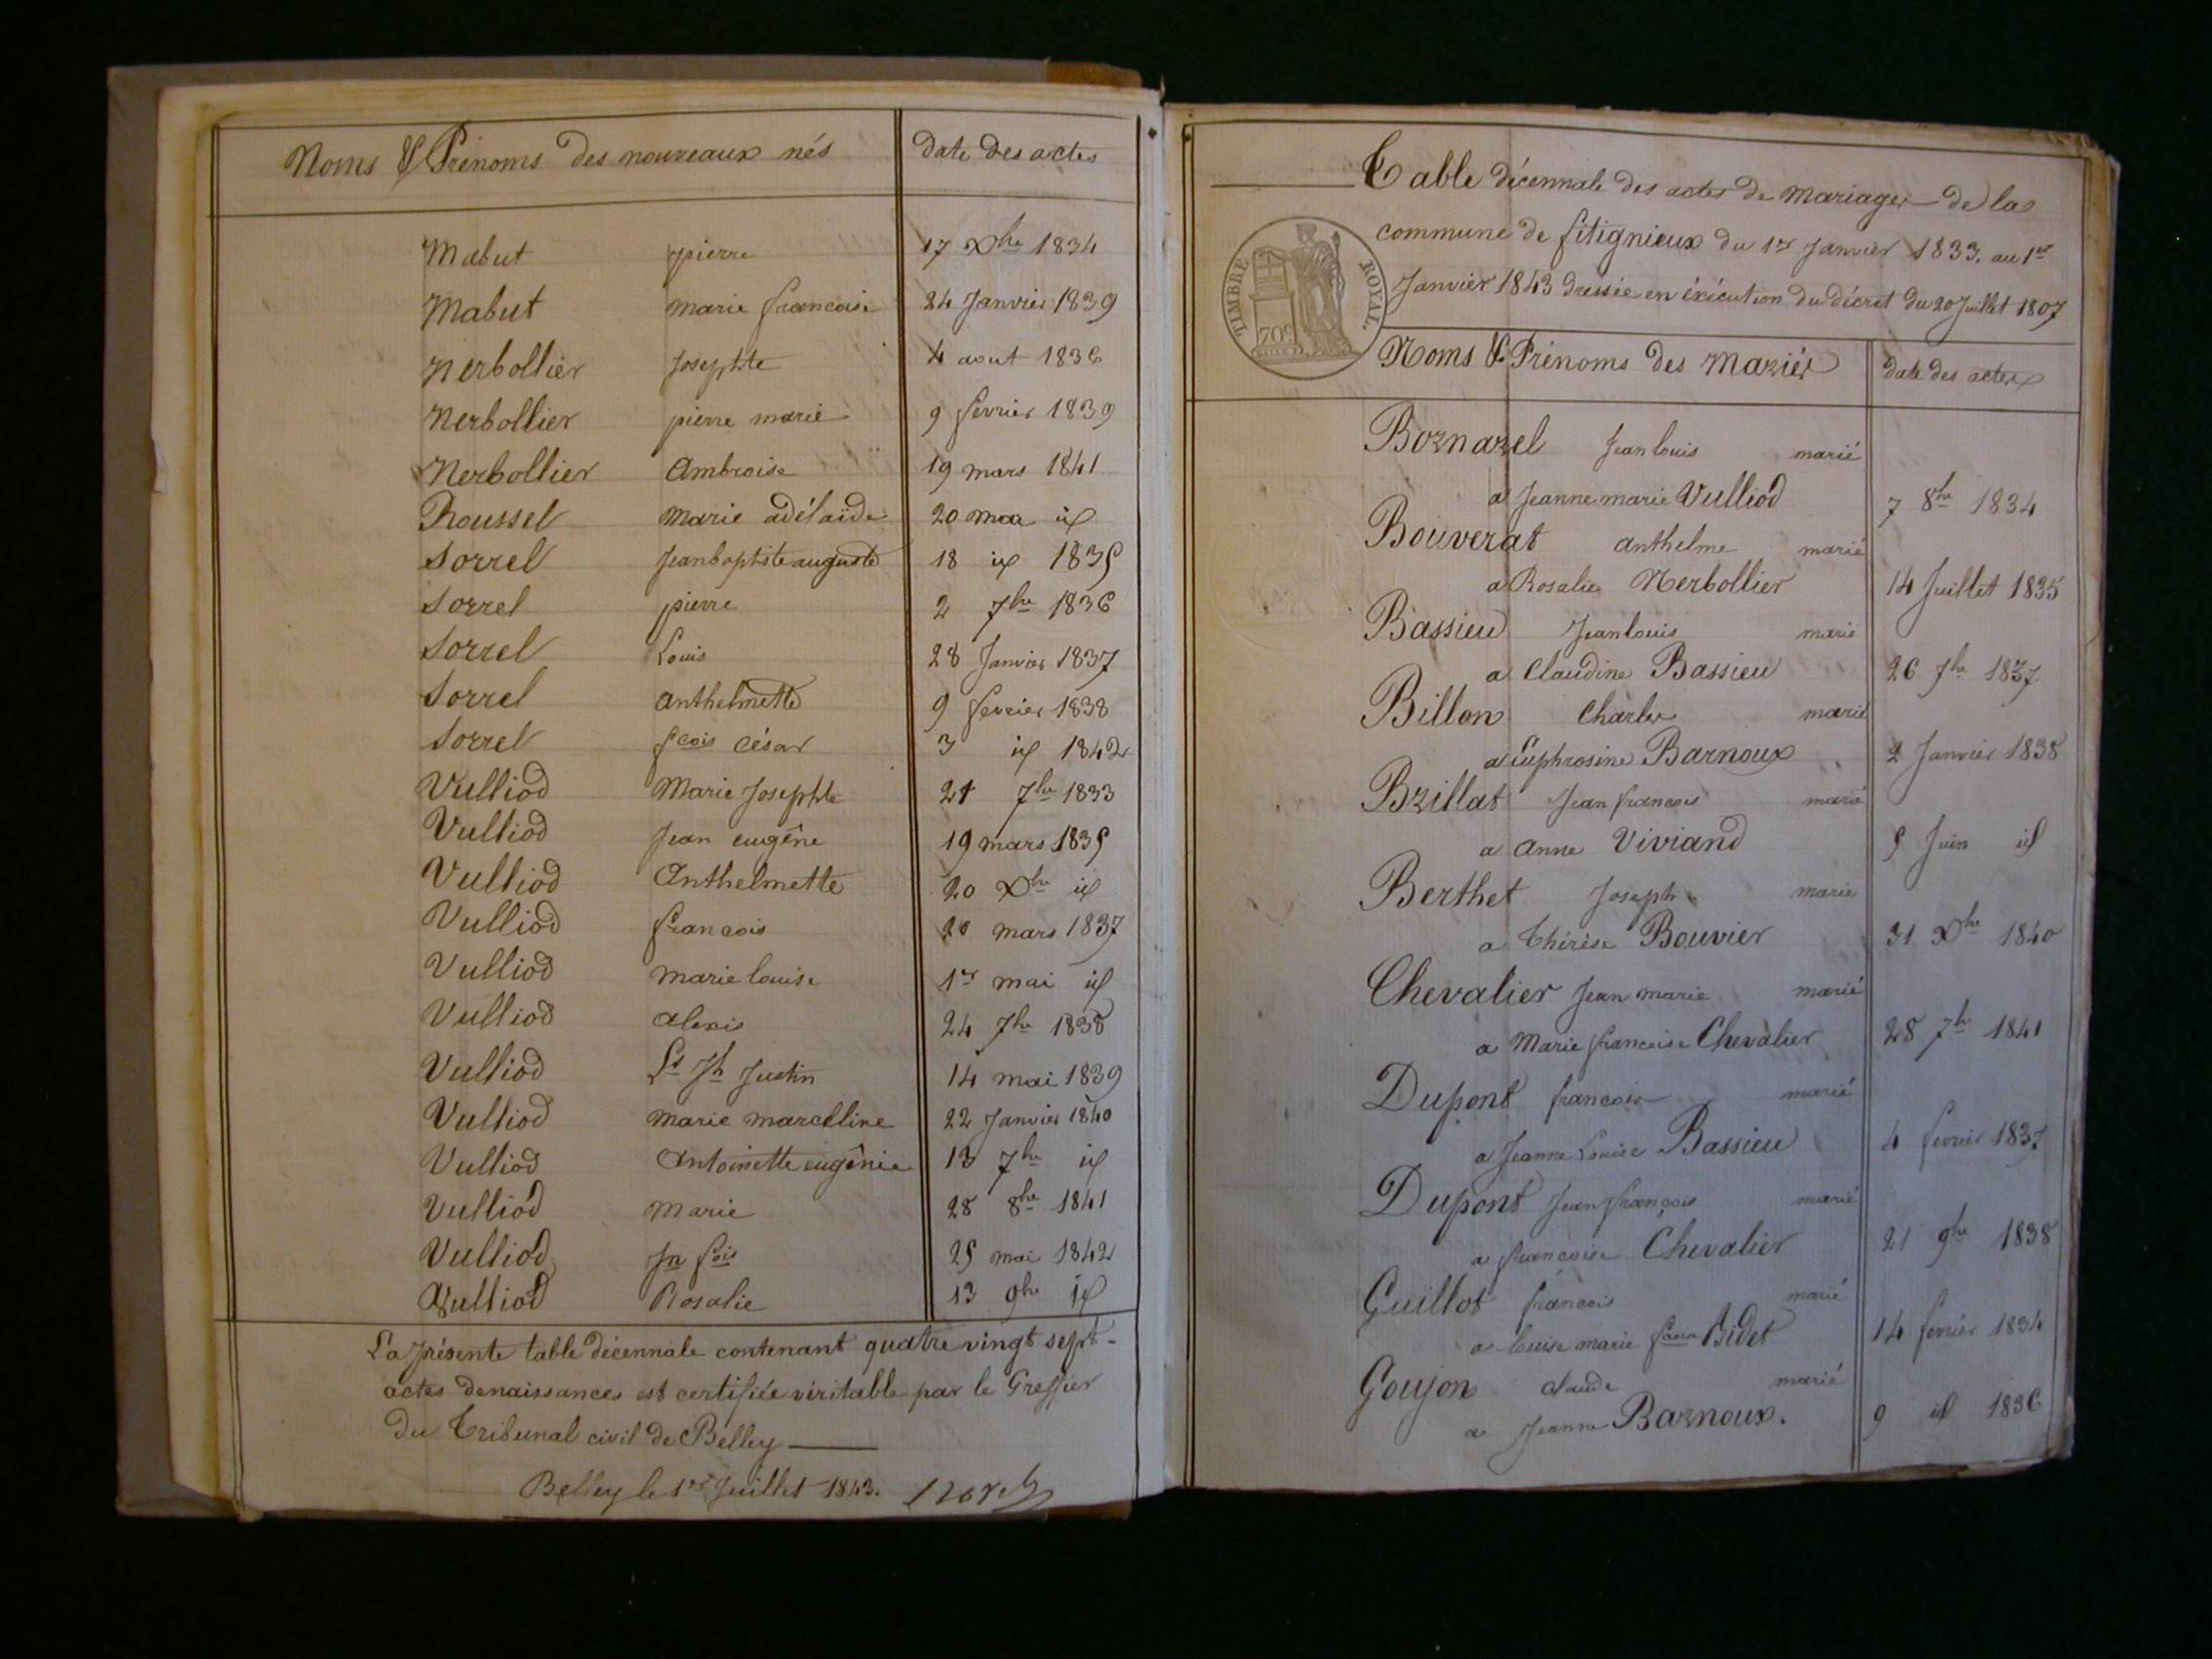 Noms & Prénoms des nouveaux nés date des actes
Mabut pierre 17 Xbre 1834
Mabut marie francoise 24 Janvier 1839
Nerbollier Josephte 4 aout 1836
Nerbollier pierre marie 9 fevrier 1839
Nerbollier Ambroise 19 mars 1841
Roussel Marie adélaïde 20 mai id
Sorrel Jean baptiste auguste 18 id 1835
Sorrel pierre 2 7bre 1836
Sorrel Louis 28 Janvier 1837
Sorrel anthelmette 9 fevrier 1838
Sorrel fcois César 3 id 1842
Vulliod Marie Josephte 21 7bre 1833
Vulliod Jean eugêne 19 mars 1835
Vulliod Anthelmette 20 Xbre id
Vulliod francois 20 mars 1837
Vulliod marie louise 1er mai id
Vulliod alexis 24 7bre 1838
Vulliod Ls Jh Justin 14 mai 1839
Vulliod marie marcelline 22 Janvier 1840
Vulliod Antoinette eugênie 13 7bre id
Vulliod Marie 28 8bre 1841
Vulliod Jn fois 25 mai 1842
Vulliod Rosalie 13 9bre id
La présente table décennale contenant quatre vingt sept
actes de naissances est certifiée véritable par le Greffier
du Tribunal civil de Belley
Belley le 1er Juillet 1843.
Table décennale des actes de Mariages de la
commune de fitignieux du 1er Janvier 1833. au 1er
Janvier 1843 dressée en éxécution du décret du 20 Juillet 1807
TIMBRE ROYAL.
70c
Noms & Prénoms des Mariés date des actes
Boznazel Jean louis marié
a Jeanne marie Vulliod 7 8bre 1834
Bouverat anthelme marié
a Rosalie Nerbollier 14 Juillet 1835
Bassieu Jean louis marié
a Claudine Bassieu 26 7bre 1837
Billon Charles marié
a Euphrosine Barnoux 2 Janvier 1838
Brillat Jean francois marié
a anne Viviand 5 Juin id
Berthet Joseph marié
a Thérèse Bouvier 31 Xbre 1840
Chevalier Jean marie marié
a Marie francoise Chevalier 28 7bre 1841
Dupont francois marié
a Jeanne Louise Bassieu 4 fevrier 1837
Dupont Jean françois marié
a francoise Chevalier 21 9bre 1838
Guillot francois marié
a louise marie Bidet 14 fevrier 1834
Goujon claude marié
a Jeanne Barnoux. 9 id 1836